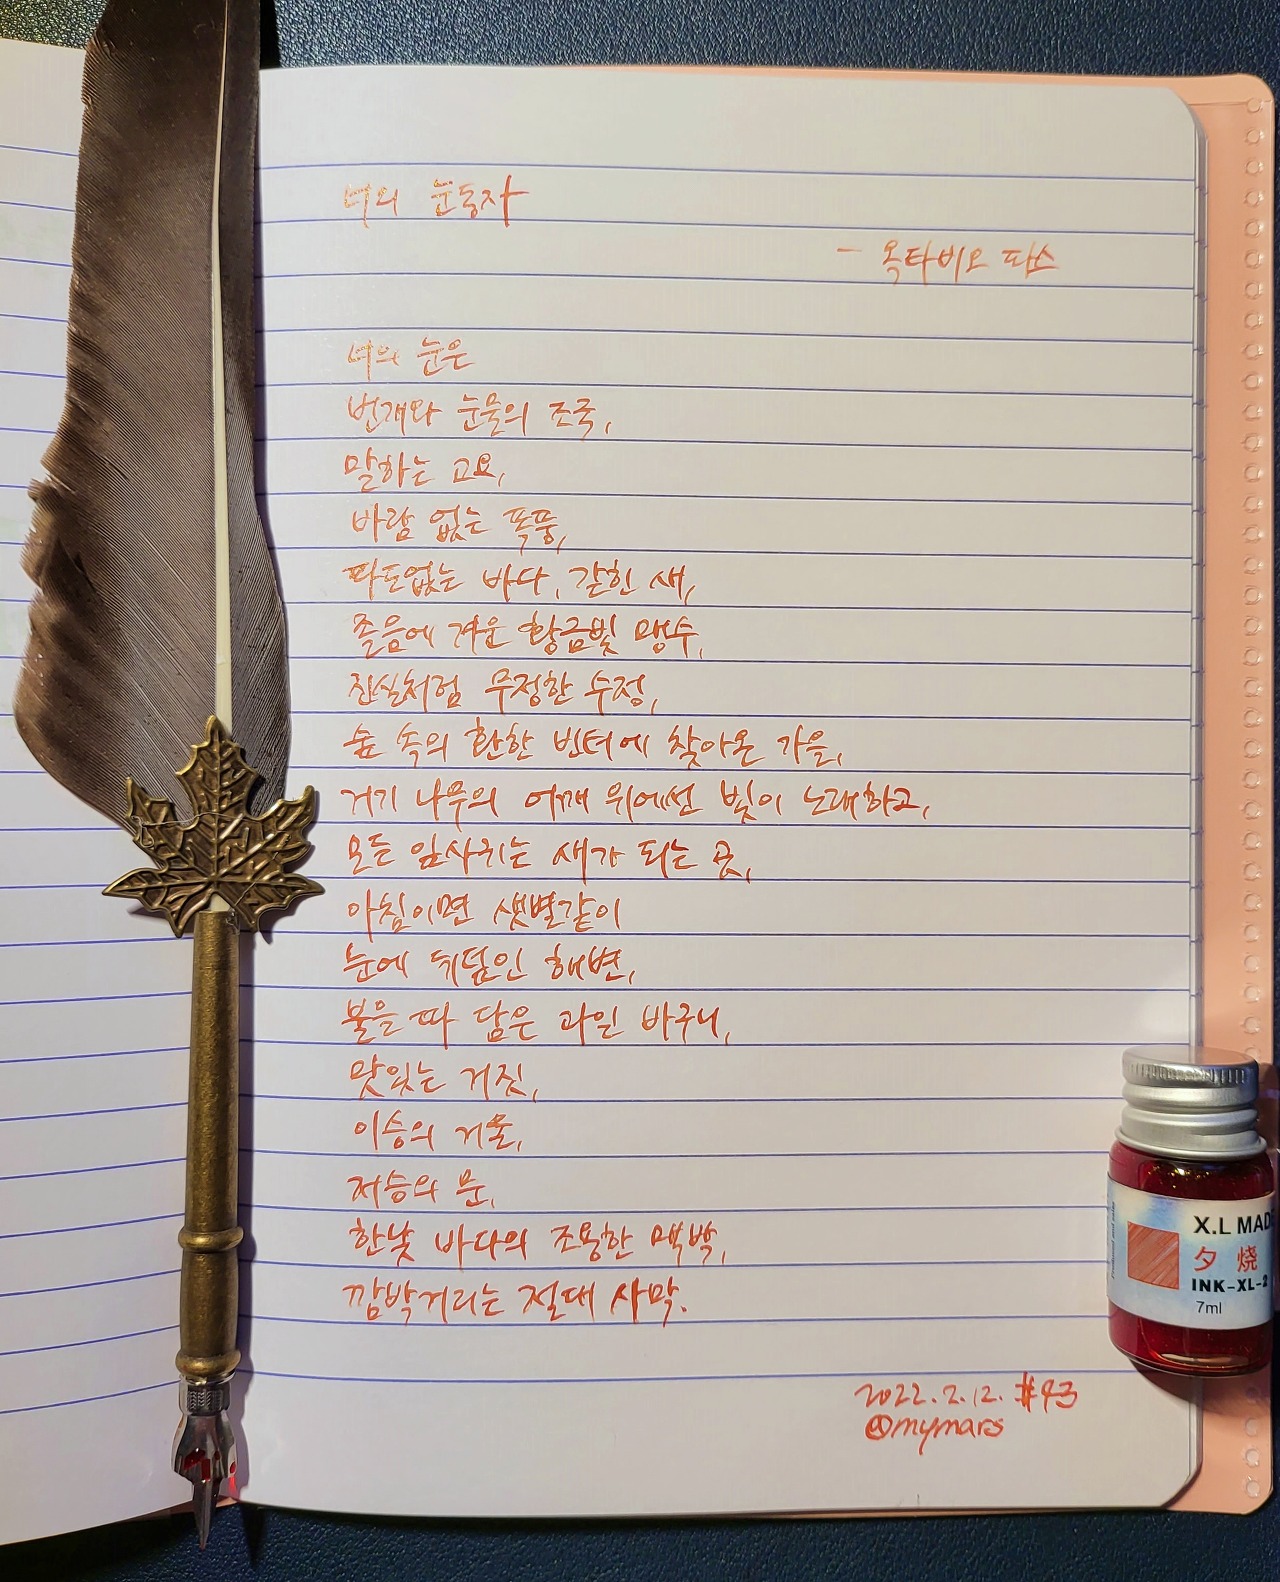 너의 눈동자
- 옥타비오 파스
너의 눈은
번개와 눈물의 조국,
말하는 고요,
바람 없는 폭풍,
파도없는 바다, 갇힌 새,
졸음에 겨운 황금빛 맹수,
진실처럼 무정한 수정,
숲 속의 환한 빈터에 찾아온 가을,
거기 나무의 어깨 위에선 빛이 노래하고,
모든 잎사귀는 새가 되는 곳,
아침이면 샛별같이
눈에 뒤덮인 해변,
불을 따 담은 과일 바구니,
맛있는 거짓,
이승의 거울,
저승의 문,
한낮 바다의 조용한 맥박,
깜박거리는 절대 사막.
2022.2.12. #43
@mymars
X.L MAD
夕 烧
INK-XL-2
7ml